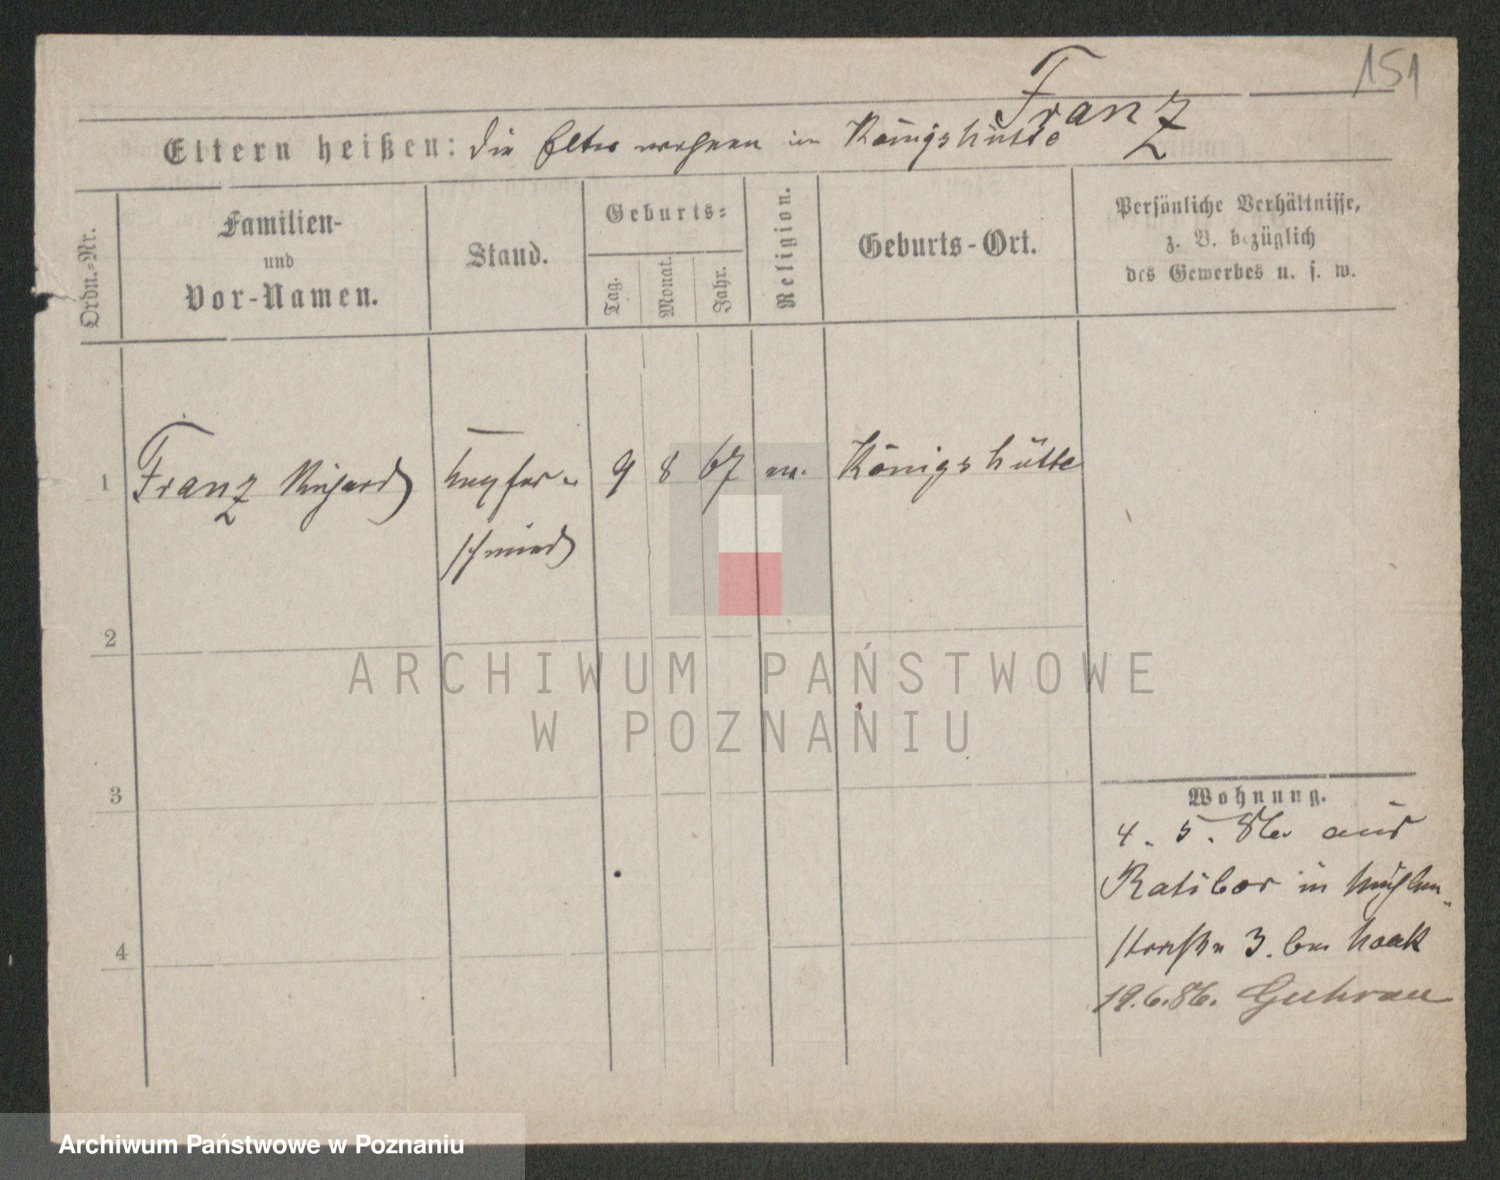 151
Franz
Eltern heißen: die Eltern wohnen in Königshütte
Ordn.-Nr.
Familien-
und
Vor-Namen.
Stand.
Geburts-
Tag.
Monat.
Jahr.
Religion.
Geburts-Ort.
Persönliche Verhältnisse,
z. B. bezüglich
des Gewerbes u. s. w.
1 Franz Richard Kupfer- 9 8 67 m. Königshütte
schmied
2
ARCHIWUM PAŃSTWOWE
W POZNANIU
3
Wohnung.
4. 5. 86. aus
Ratibor in
straße 3. bei Haak
4
19.6.86. Guhrau
Archiwum Państwowe w Poznaniu